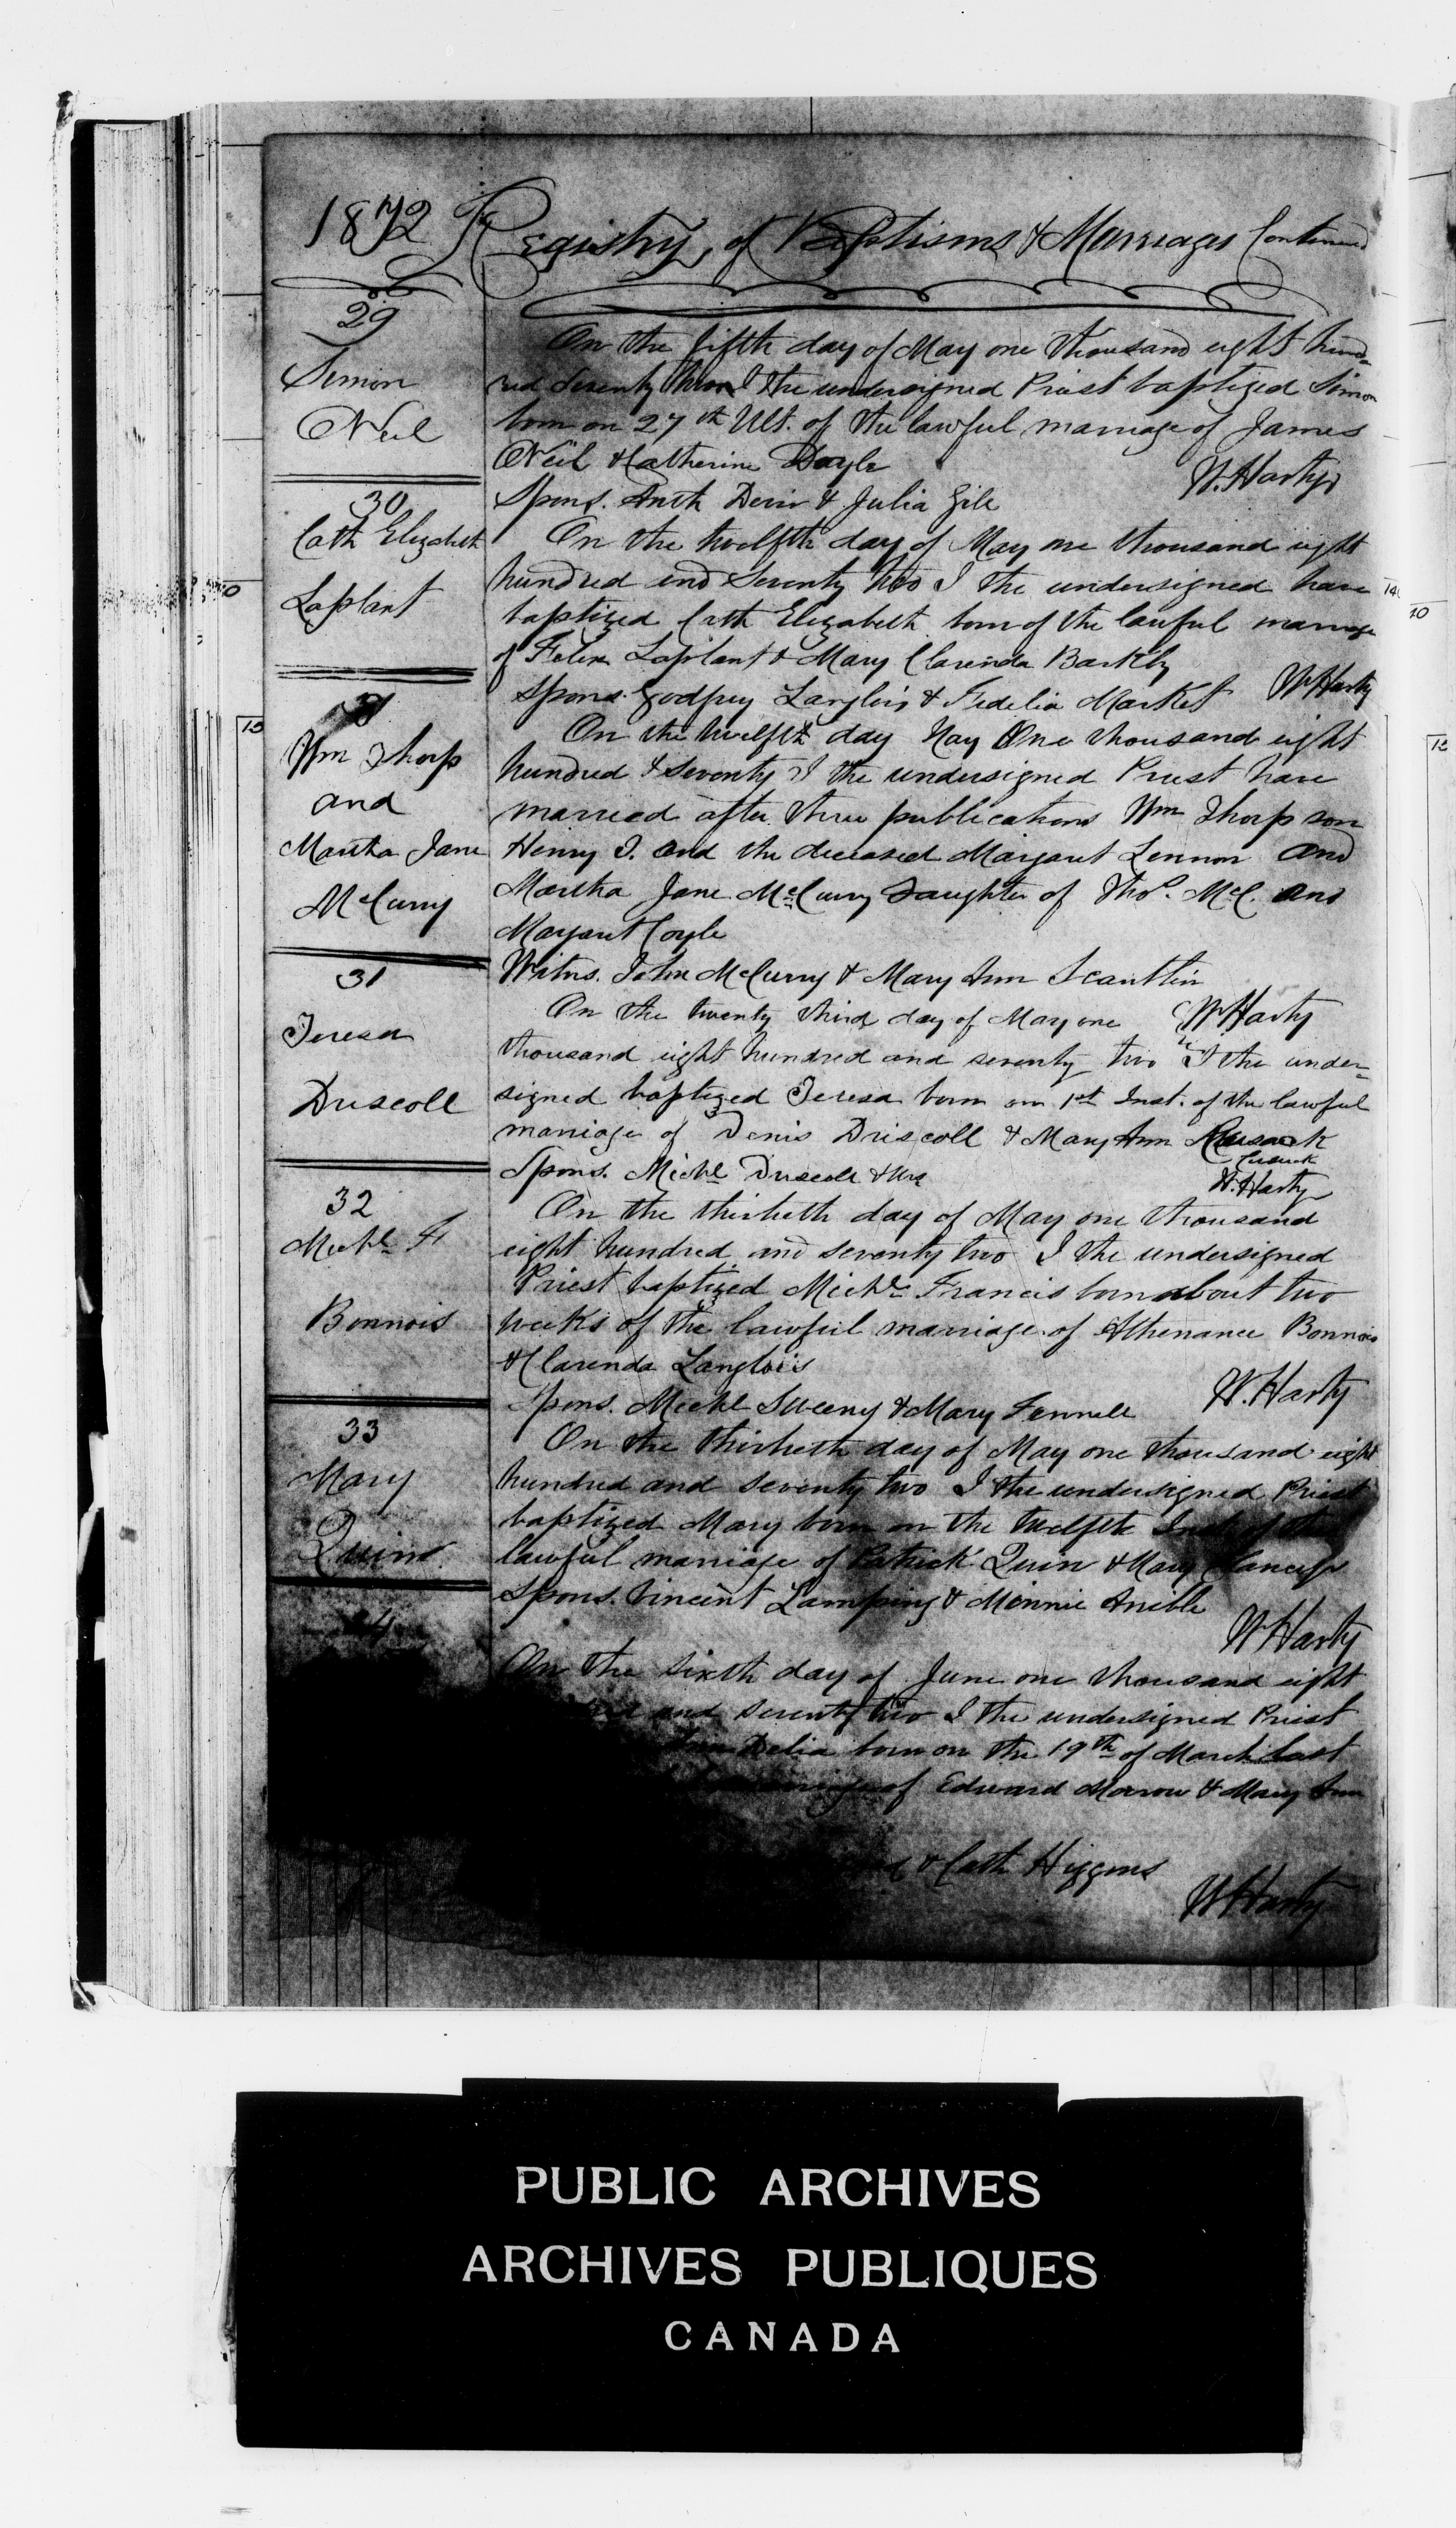 1872 Registry of Baptisms & Marriages Continued
29
Simon
ONeil
On the fifth day of May one thousand eight hund=
red seventy two I the undersigned Priest baptized Simon
born on 27th Ult. of the lawful marriage of James
ONeil & Catherine Doyle
W. Harty
Spons. Anth Devin & Julia Gile
30
Cath Elizabeth
Laplant
On the twelfth day of May one thousand eight
hundred and seventy two I the undersigned have
baptized Cath Elizabeth born of the lawful marriage
of Felix Laplant & Mary Clarinda Barkly
Spons. Godfrey Langlois & Fedelia Market W Harty
Wm Thorp
and
Martha Jane
McCurry
On the twelfth day May One thousand eight
hundred & seventy I the undersigned Priest have
married after three publications Wm Thorp son
Henry T. and the deceased Margaret Lennon and
Martha Jane McCurry Daughter of Tho. McC. and
Margaret Coyle
Witns. John McCurry & Mary Ann Scantlin
W Harty
31
Teresa
Driscoll
On the twenty third day of May one
thousand eight hundred and seventy two I the under=
signed baptized Teresa born on 1st Inst. of the lawful
marriage of Denis Driscoll & Mary Ann
Cusack
Spons. Michl Driscoll &
W. Harty
32
Michl F
Bonnois
On the thirtieth day of May one thousand
eight hundred and seventy two I the undersigned
Priest baptized Michl Francis born about two
weeks of the lawful marriage of Athenance Bonnois
& Clarenda Langlois
W. Harty
Spons. Michl Sweeny & Mary Fennell
33
Mary
Quinn
On the thirtieth day of May one thousand eight
hundred and seventy two I the undersigned Priest
baptized Mary born on the twelfth Inst of the
lawful marriage of Patrick Quin & Mary
Spons. Vincent Lamping & Minnie Anible
W Harty
4
On the sixth day of June one thousand eight
and seventy two I the undersigned Priest
Delia born on the 19th of March last
marriage of Edward Morrow & Mary Ann
& Cath Higgins
W Harty
PUBLIC ARCHIVES
ARCHIVES PUBLIQUES
CANADA